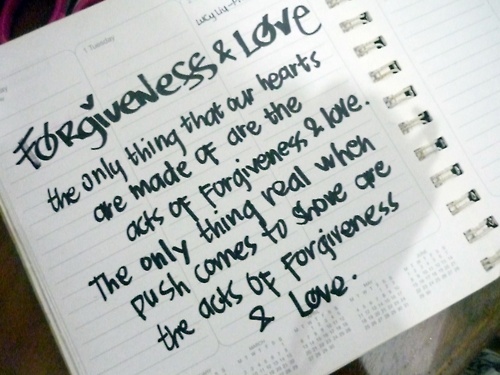 1 Tuesday
FORgiveness & Love
the only thing that our hearts
are made of are the
acts of Forgiveness & love.
The only thing real when
push comes to shove are
the acts of Forgiveness
& Love.